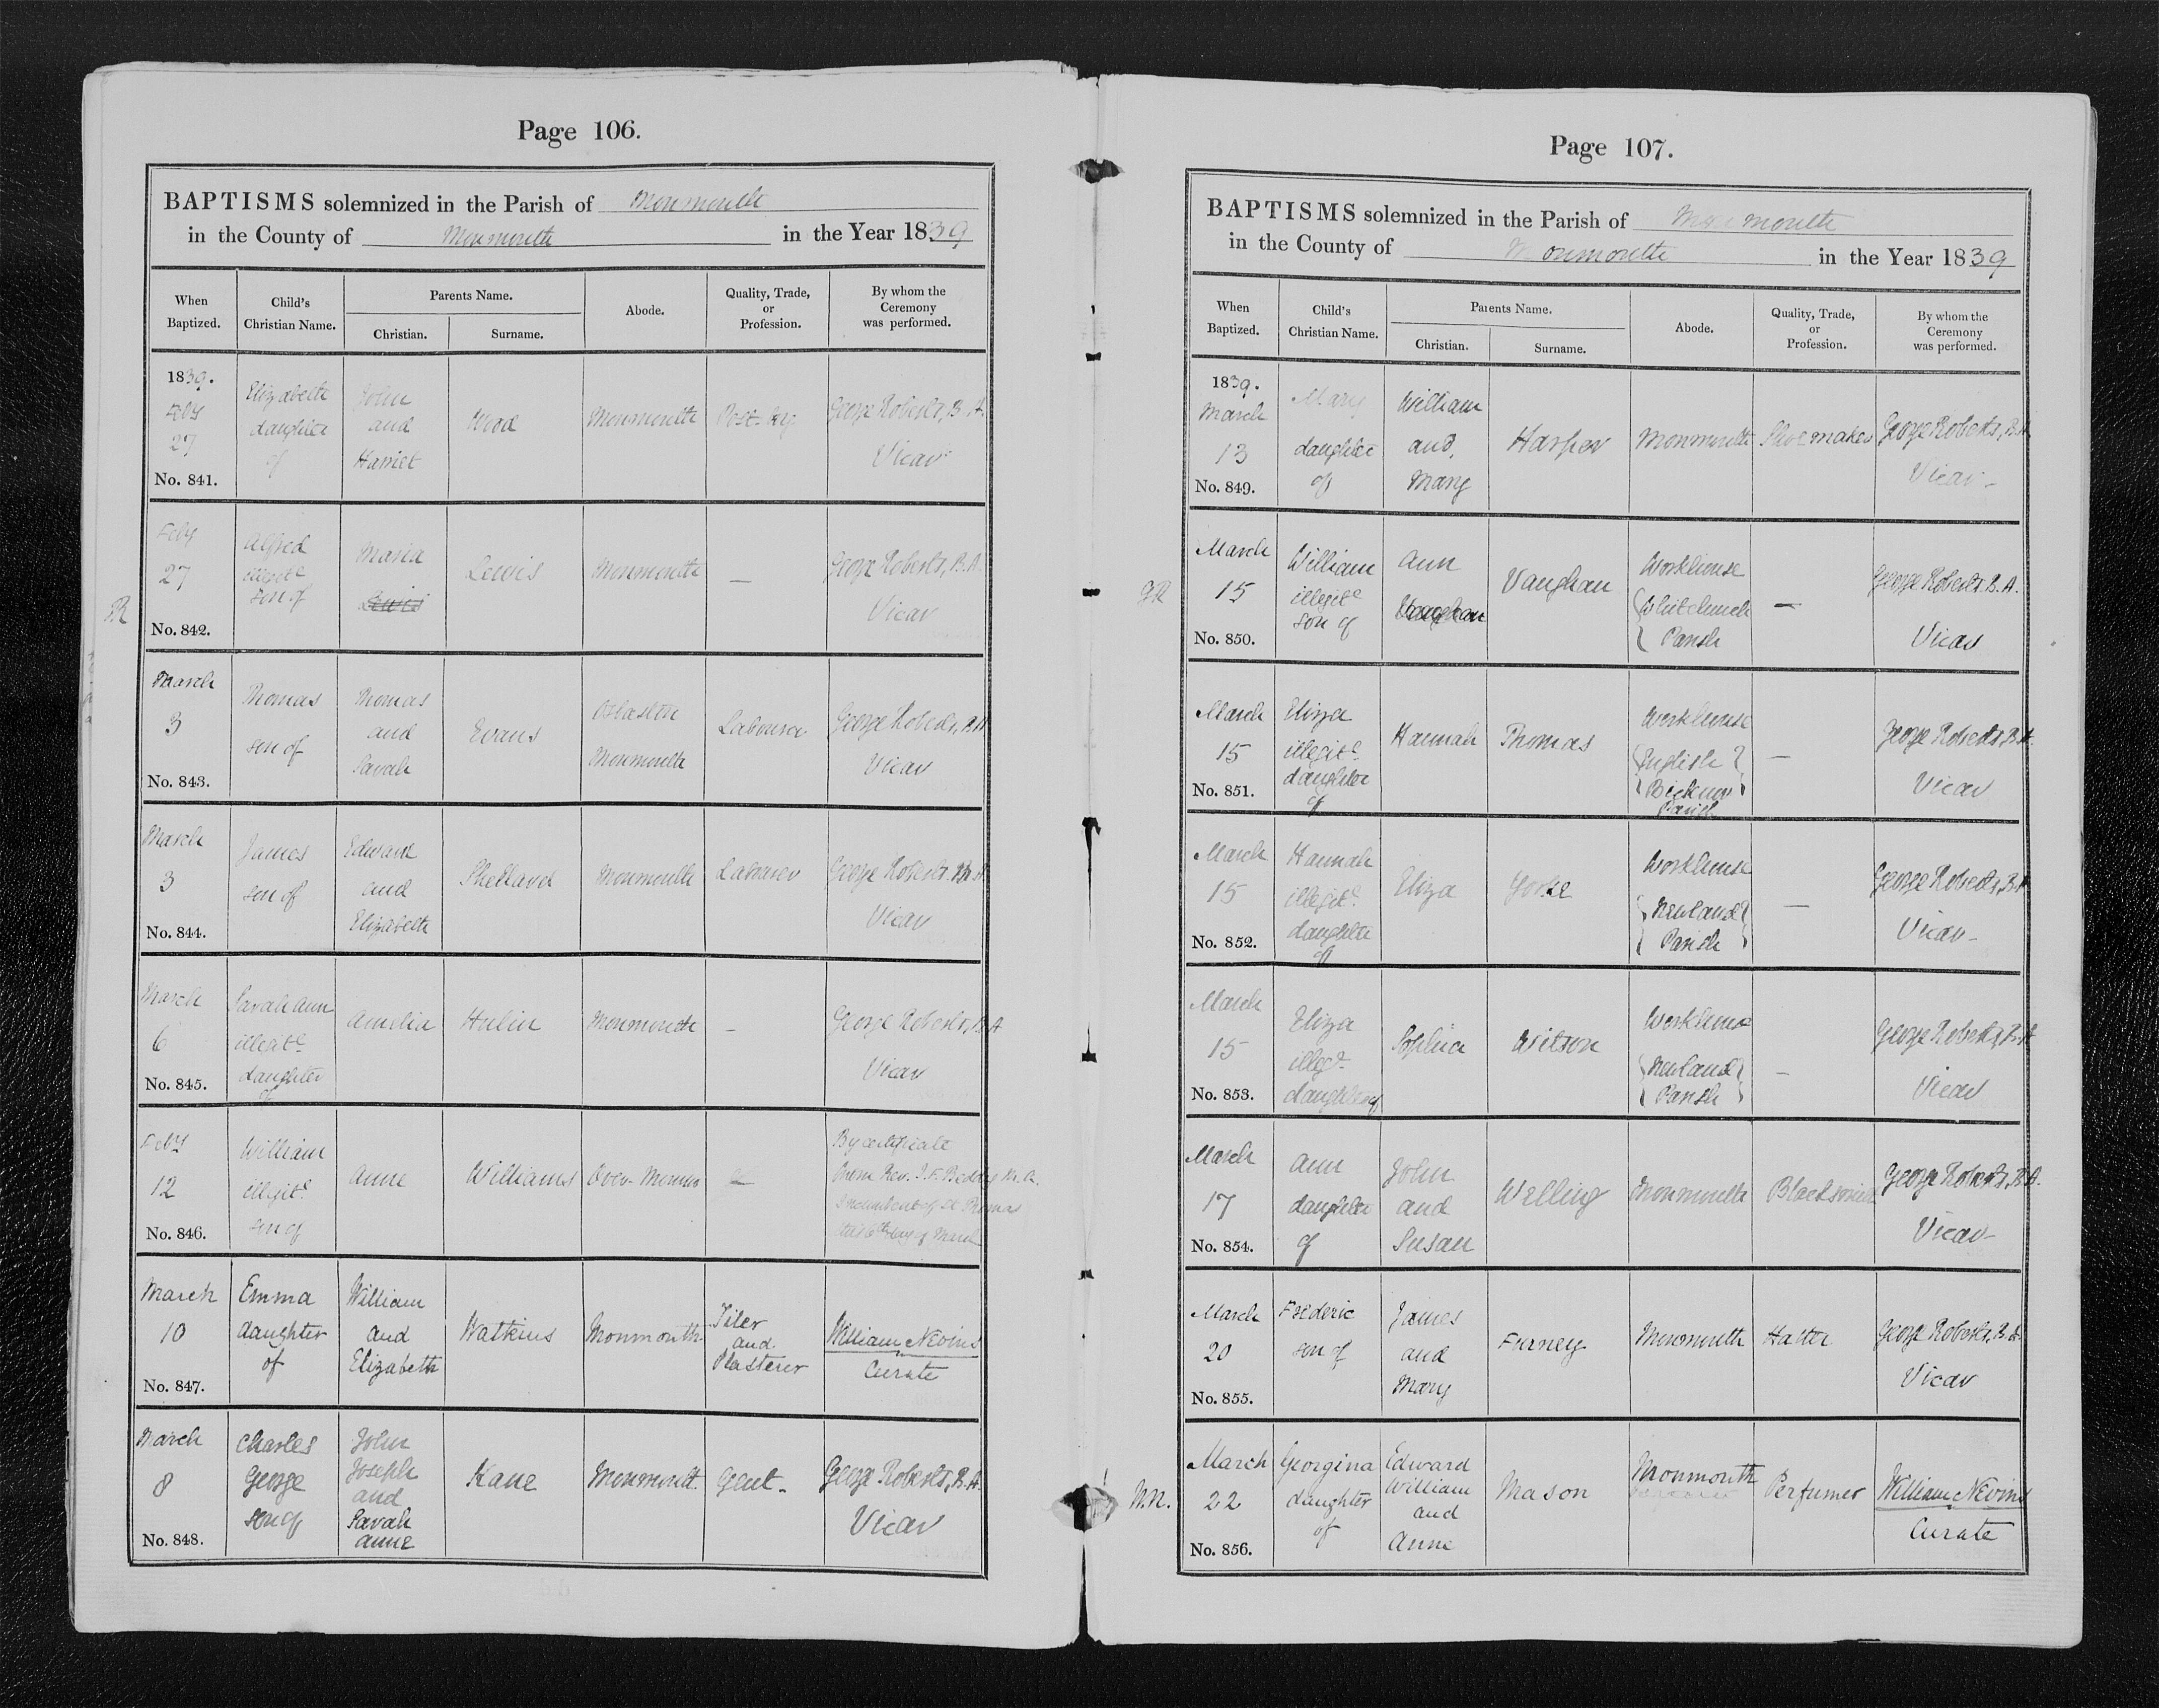 Page 106.
BAPTISMS solemnized in the Parish of Monmouth
in the County of Monmouth in the Year 1839
When Baptized. Child's Christian Name. Parents Name. Christian. Surname. Abode. Quality, Trade, or Profession. By whom the Ceremony was performed.
1839. Feby 27 No. 841. Elizabeth daughter of John and Harriet Wood Monmouth George Roberts, B.A. Vicar
Feby 27 No. 842. Alfred illegite son of Maria Lewis Lewis Monmouth — George Roberts, B.A. Vicar
March 3 No. 843. Thomas son of Thomas and Sarah Evans Osbaston Monmouth Labourer George Roberts, B.A. Vicar
March 3 No. 844. James son of Edward and Elizabeth Shellard Monmouth Labourer George Roberts B.A. Vicar
March 6 No. 845. Sarah Ann illegite daughter of Amelia Hulin Monmouth — George Roberts, B.A. Vicar
Feby 12 No. 846. William illegite son of Anne Williams Over-Monnow — By certificate from Rev. Beddy M.A. Incumbent of St Thomas 6th day of March
March 10 No. 847. Emma daughter of William and Elizabeth Watkins Monmouth Tiler and Plasterer William Nevins Curate
March 8 No. 848. Charles George son of John Joseph and Sarah Anne Kane Monmouth Gent. George Roberts, B.A. Vicar
Page 107.
BAPTISMS solemnized in the Parish of Monmouth
in the County of Monmouth in the Year 1839
When Baptized. Child's Christian Name. Parents Name. Christian. Surname. Abode. Quality, Trade, or Profession. By whom the Ceremony was performed.
1839. March 13 No. 849. Mary daughter of William and Mary Harper Monmouth Shoemaker George Roberts, B.A. Vicar
GR March 15 No. 850. William illegite son of Ann Vaughan Vaughan Workhouse Whitchurch Parish — George Roberts B.A. Vicar
March 15 No. 851. Eliza illegite daughter of Hannah Thomas Workhouse English Bicknor Parish — George Roberts, B.A. Vicar
March 15 No. 852. Hannah illegite daughter of Eliza Yorke Workhouse Newland Parish — George Roberts, B.A. Vicar
March 15 No. 853. Eliza illege daughter of Sophia Wilson Workhouse Newland Parish — George Roberts, B.A. Vicar
March 17 No. 854. Ann daughter of John and Susan Welling Monmouth Blacksmith George Roberts, B.A. Vicar
March 20 No. 855. Frederic son of James and Mary Furney Monmouth Hatter George Roberts, B.A. Vicar
W.N. March 22 No. 856. Georgina daughter of Edward William and Anne Mason Monmouth Perfumer William Nevins Curate